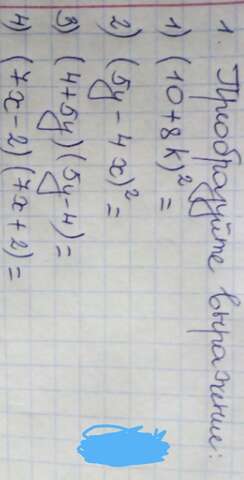 1. Преобразуйте выражение:
1) (10+8k)² =
2) (5y-4x)² =
3) (4+5y)(5y-4)=
4) (7x-2)(7x+2)=